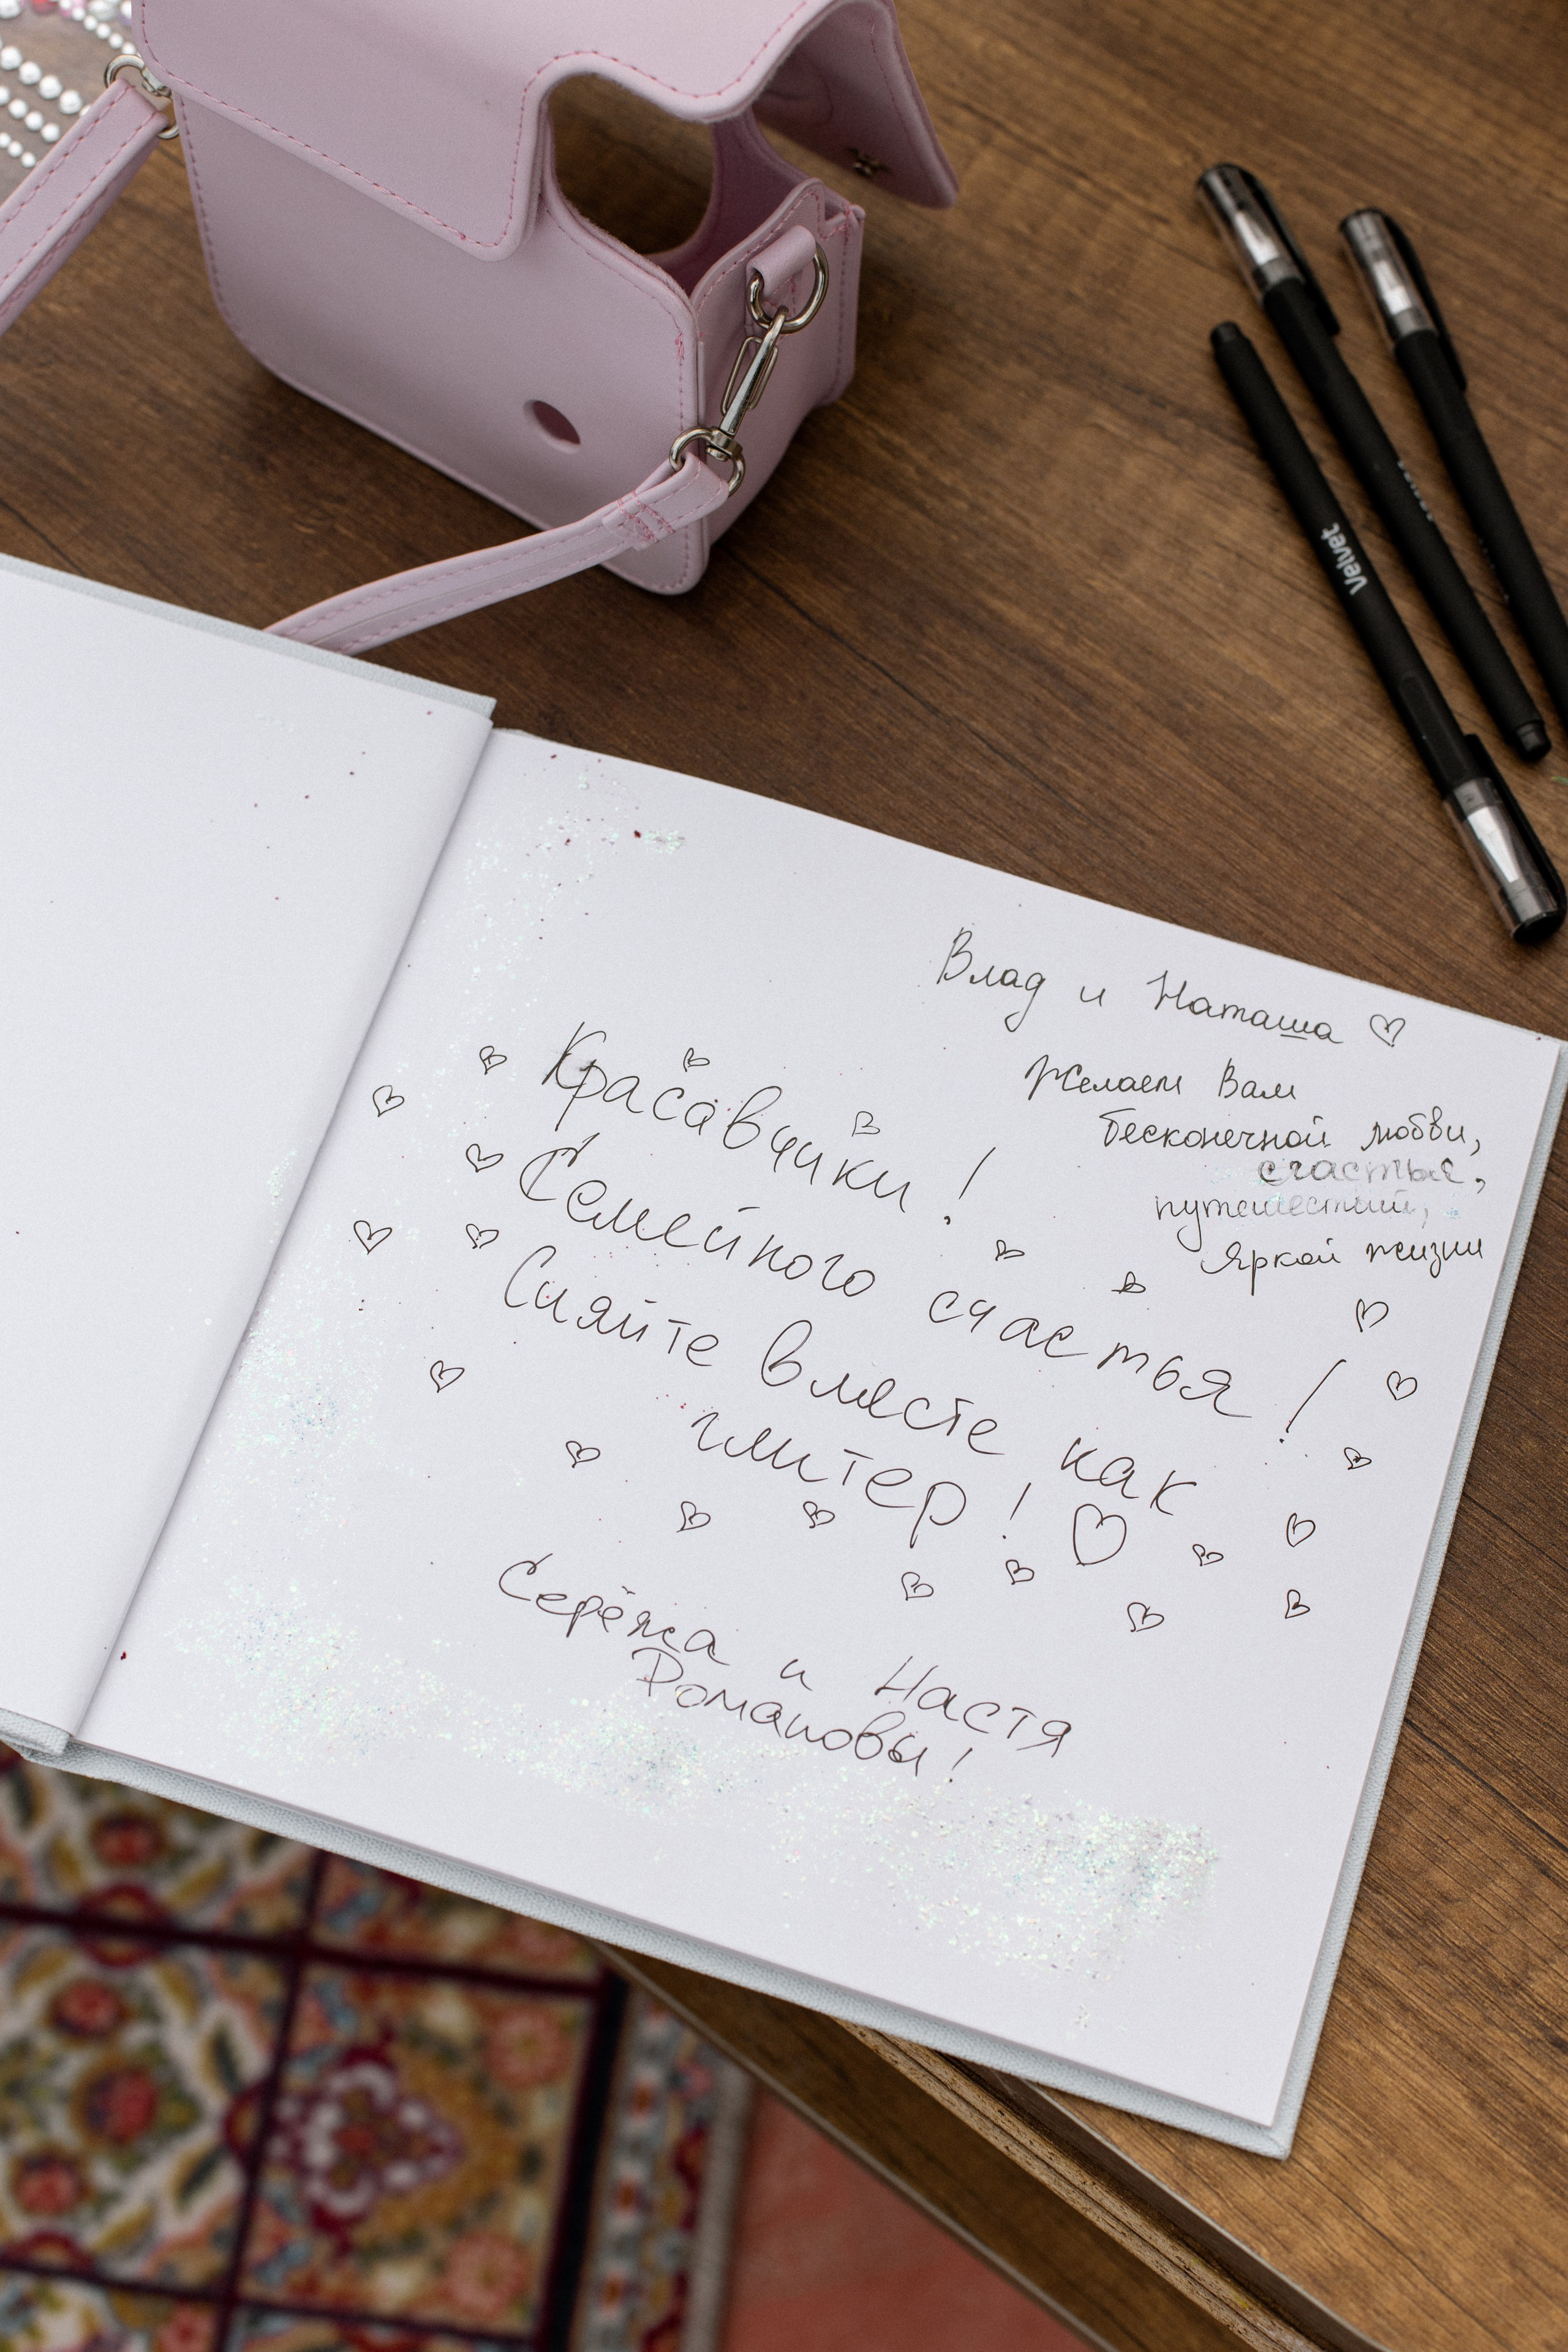 Velvet
Влад и Наташа ♡
Желаем Вам
бесконечной любви,
счастья,
путешествий,
яркой жизни
Красавчики!
Семейного счастья!
Сияйте вместе как
глитер! ♡
Серёжа и Настя
Романовы!